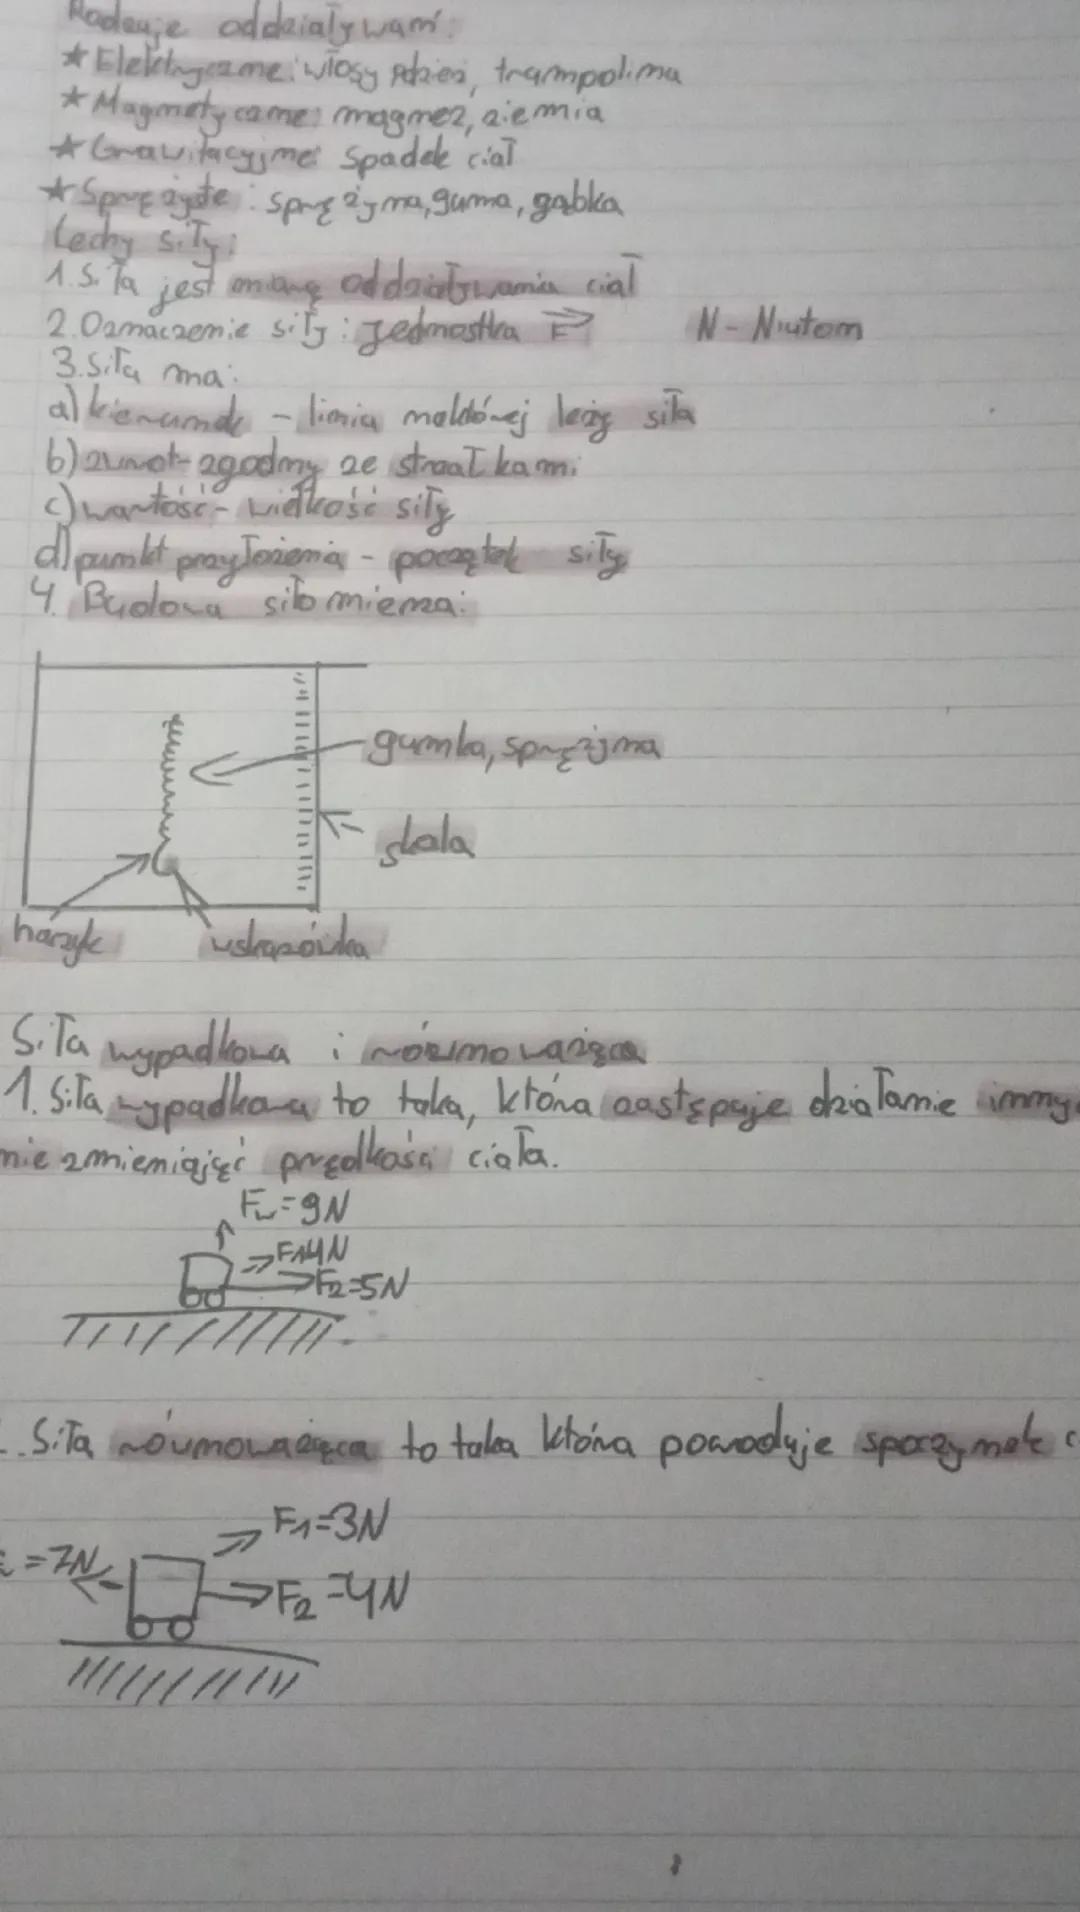 Rodzaje oddziaływań:
* Elektryczne: włosy, trampolina
* Magnetyczne: magnez, ziemia
* Grawitacyjne: Spadek ciał
* Sprężyste: sprężyna, guma, gąbka
Cechy siły:
1. Siła jest miarą oddziaływania ciał
2. Oznaczenie siły: jednostka F N - Niuton
3. Siła ma:
a) kierunek - linia na której leży siła
b) zwrot - zgodny ze strzałkami
c) wartość - wielkość siły
d) punkt przyłożenia - początek siły
4. Budowa siłomierza:
gumka, sprężyna
skala
haczyk wskazówka
Siła wypadkowa i równoważąca
1. Siła wypadkowa to taka, która zastępuje działanie inny
nie zmieniając prędkości ciała.
Fw=9N
F1 4N
F2=5N
Siła równoważąca to taka która powoduje spoczynek
F1=3N
=7N
F2=4N